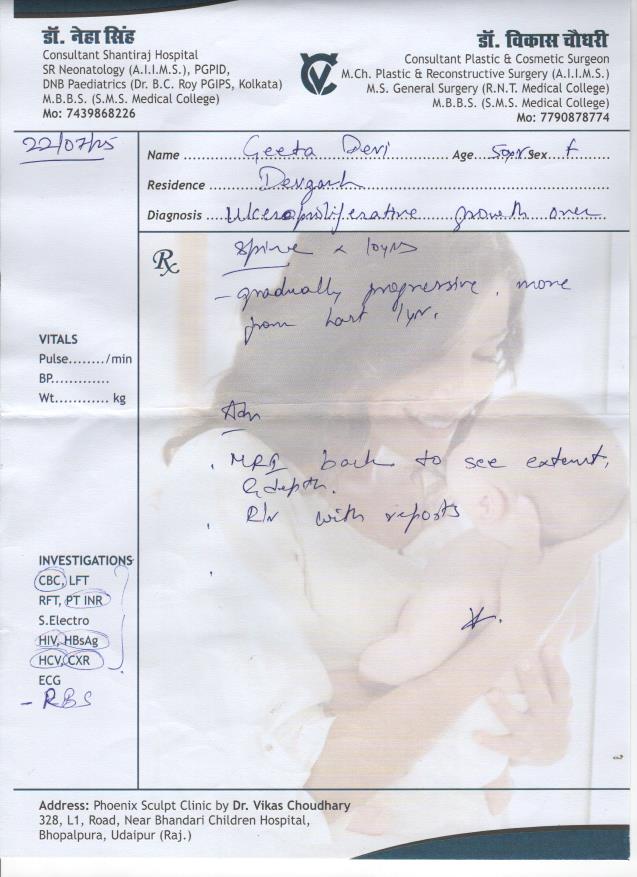 डॉ. नेहा सिंह
Consultant Shantiraj Hospital
SR Neonatology (A.I.I.M.S.), PGPID,
DNB Paediatrics (Dr. B.C. Roy PGIPS, Kolkata)
M.B.B.S. (S.M.S. Medical College)
Mo: 7439868226
डॉ. विकास चौधरी
Consultant Plastic & Cosmetic Surgeon
M.Ch. Plastic & Reconstructive Surgery (A.I.I.M.S.)
M.S. General Surgery (R.N.T. Medical College)
M.B.B.S. (S.M.S. Medical College)
Mo: 7790878774
22/07/25
Name Geeta Devi Age 50yr Sex f
Residence Devgarh
Diagnosis Ulceroproliferative growth over
Rx spine x 10yrs
- gradually progressive, more
from last 1yr.
VITALS
Pulse......../min
BP.............
Wt............ kg
Adv
. MRI back to see extent,
& depth.
. R/v with reports
INVESTIGATIONS
CBC, LFT
RFT, PT INR
S.Electro
HIV, HBsAg
HCV, CXR
ECG
- RBS
Address: Phoenix Sculpt Clinic by Dr. Vikas Choudhary
328, L1, Road, Near Bhandari Children Hospital,
Bhopalpura, Udaipur (Raj.)